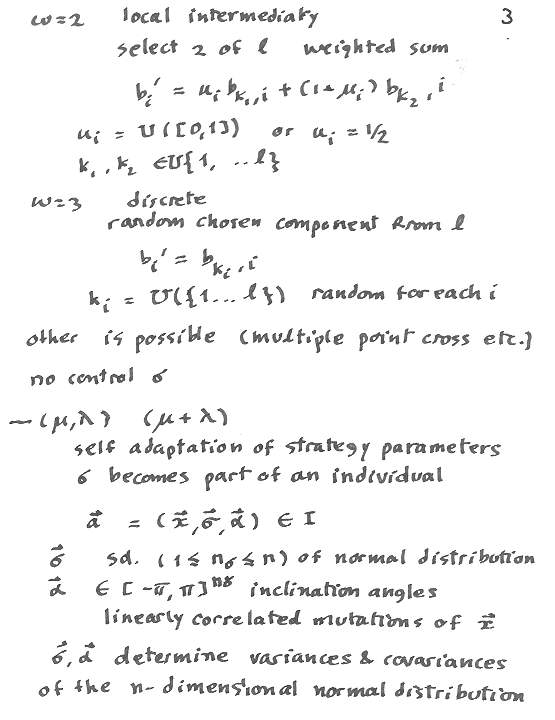 ω=2 local intermediary 3
select 2 of l weighted sum
bᵢ' = uᵢ b_{k₁,i} + (1-μᵢ) b_{k₂,i}
uᵢ = U([0,1]) or uᵢ = 1/2
k₁, k₂ ∈ U{1, ..l}
ω=3 discrete
random chosen component from l
bᵢ' = b_{kᵢ,i}
kᵢ = U({1...l}) random for each i
other is possible (multiple point cross etc.)
no control σ
– (μ,λ) (μ+λ)
self adaptation of strategy parameters
σ becomes part of an individual
a⃗ = (x⃗,σ⃗,α⃗) ∈ I
σ⃗ sd. (1≤ n_σ ≤ n) of normal distribution
α⃗ ∈ [-π, π]^{nα} inclination angles
linearly correlated mutations of x⃗
σ⃗,α⃗ determine variances & covariances
of the n-dimensional normal distribution